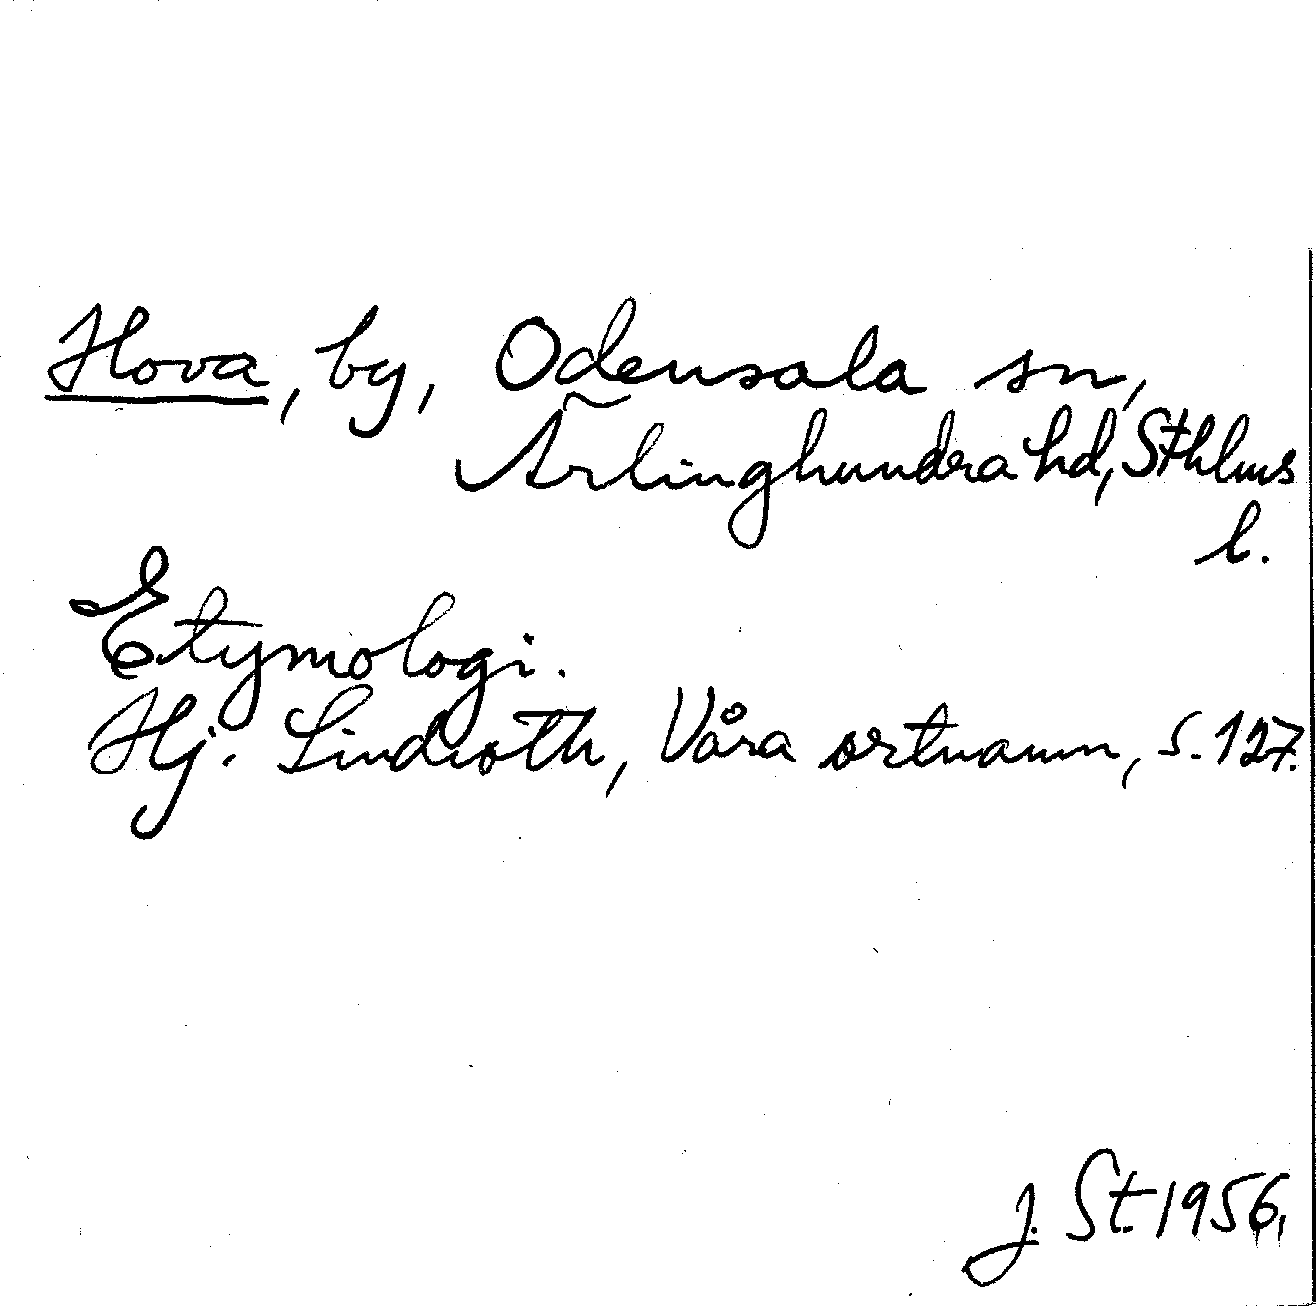 Hova, by, Odensala sn,
Ärlinghundra hd, Sthlms
l.
Etymologi.
Hj. Lindroth, Våra ortnamn, s. 127.
J. St. 1956.